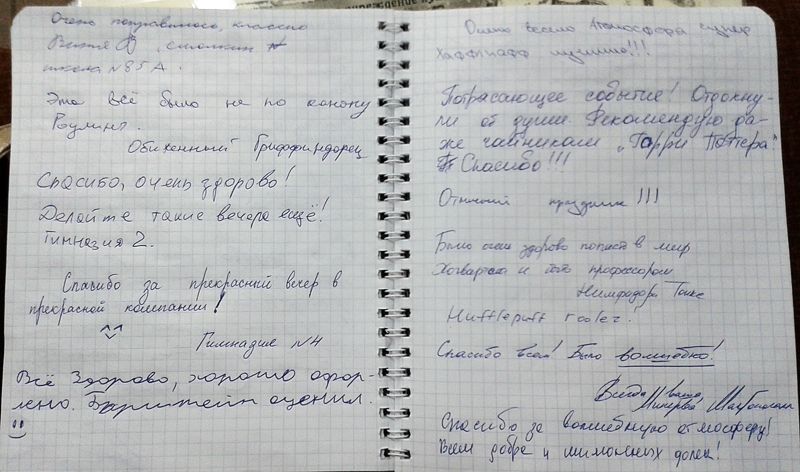 Очень понравилось, классно
школа №85А.
Это всё было не по канону
Роулинг.
Обиженный Гриффиндорец
Спасибо, очень здорово!
Делайте такие вечера ещё!
Гимназия 2.
Спасибо за прекрасный вечер в
прекрасной компании!
^^
Гимназия №4
Всё Здорово, хорошо офор-
лено. Бернштейн оценил.
Очень весело Атмосфера супер
Хаффлпафф лучшие!!!
Потрясающее событие! Отдохну-
ли от души. Рекомендую да-
же чайникам „Гарри Поттера".
Спасибо!!!
Отличный праздник!!!
Было очень здорово попасть в мир
Хогвартса и быть профессором
Нимфадора Тонкс
Hufflepuff rooles!
Спасибо всем! Было волшебно!
Всегда ваша,
Минерва МакГонагалл
Спасибо за волшебную атмосферу!
Всем добра и лимонных долек!